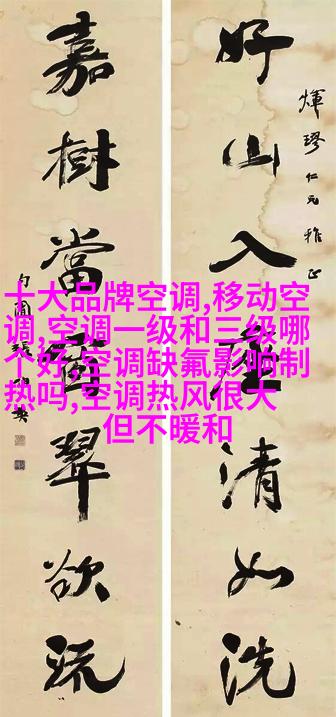 十大品牌空调,移动空
调,空调一级和三级哪
个好,空调缺氟影响制
热吗,空调热风很大
但不暖和
煇璆仁兄雅正
好山入座清如洗
嘉樹當窗翠欲流